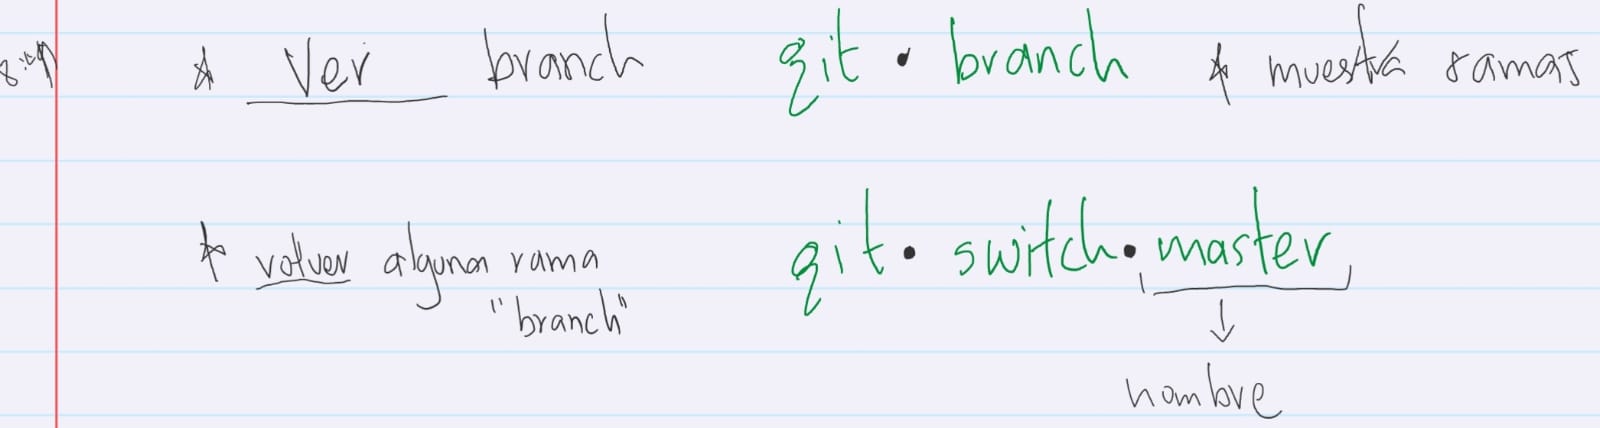 * Ver branch git • branch * muestra ramas
* volver alguna rama git • switch • master
"branch"
↓
nombre